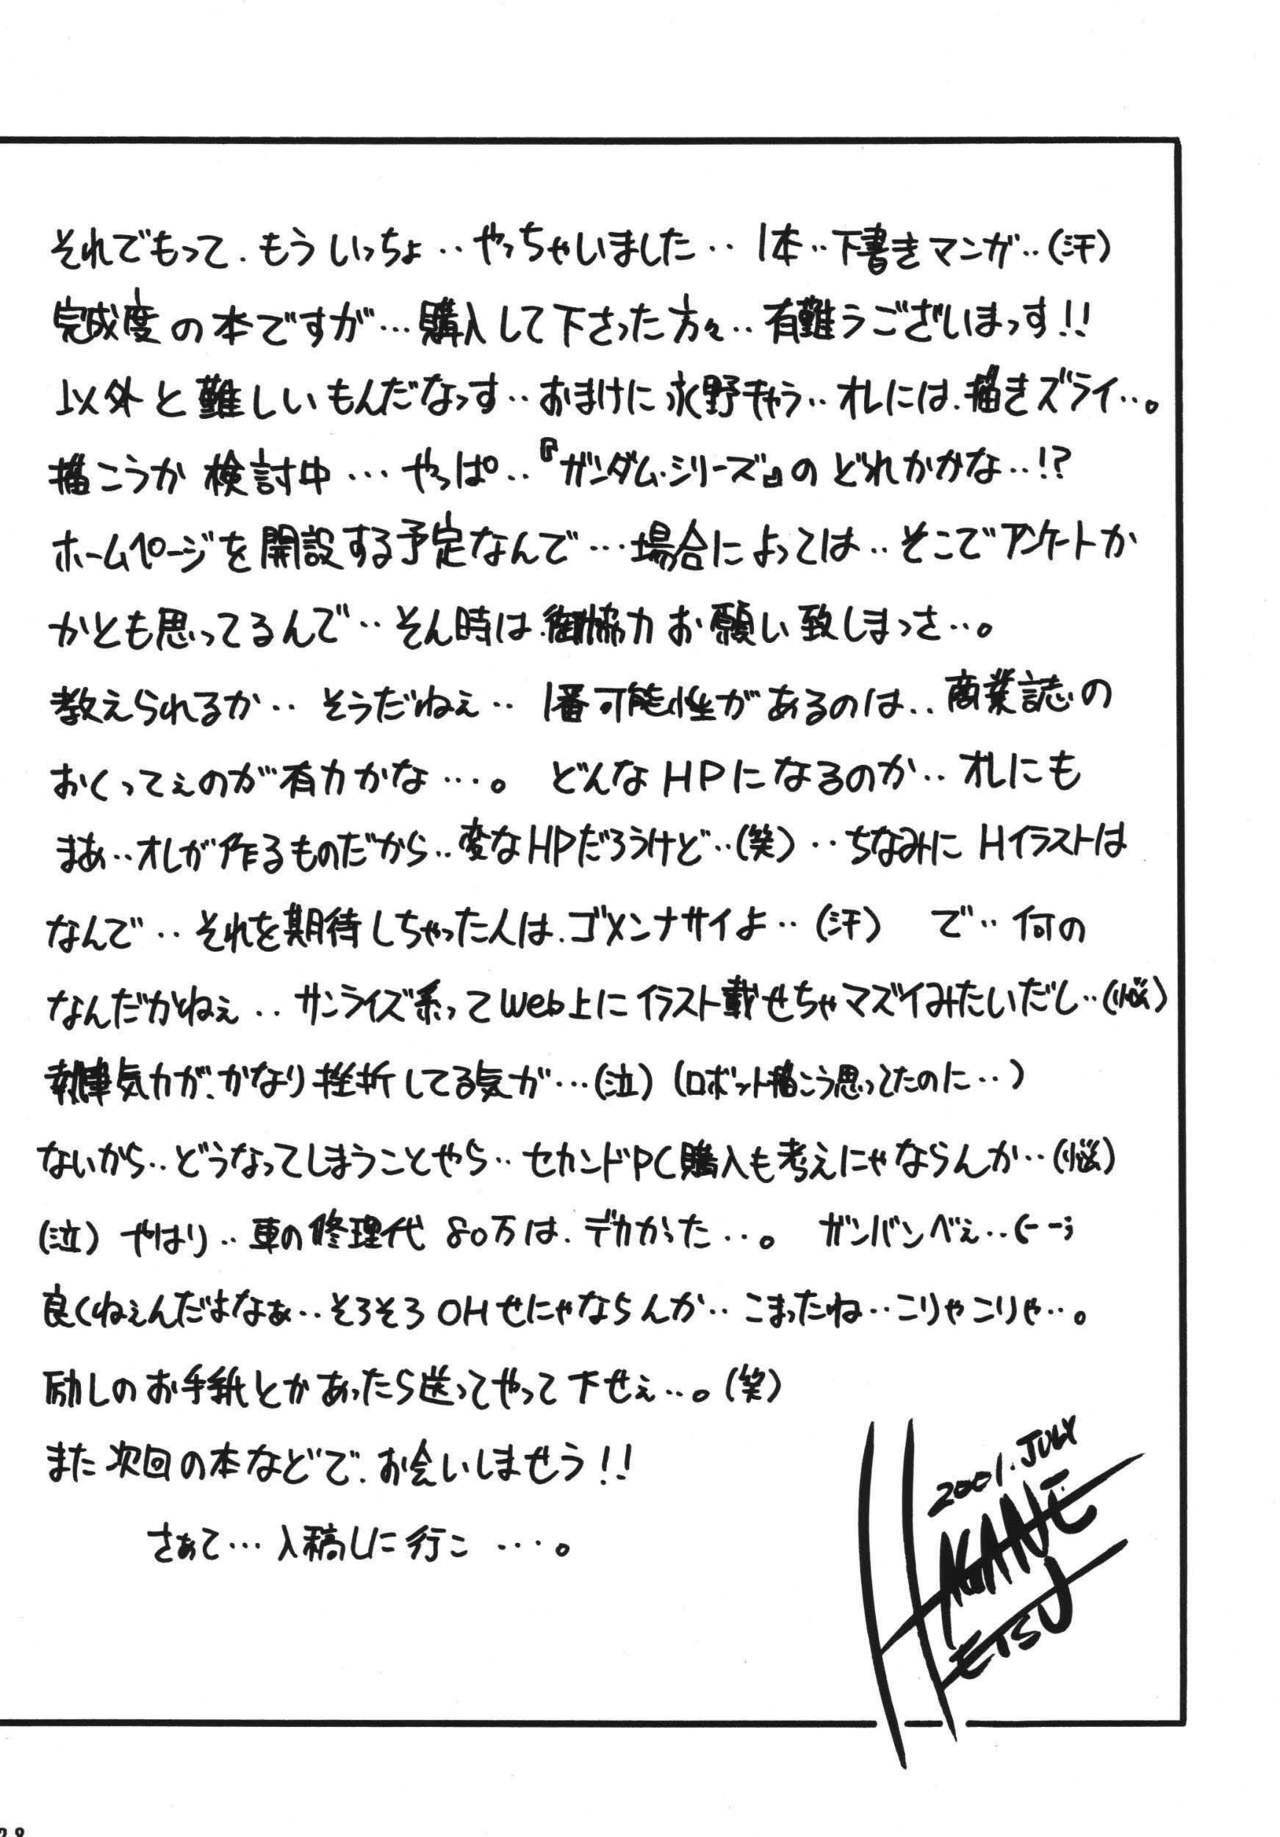 それでもって、もういっちょ‥やっちゃいました‥1本‥下書きマンガ‥(汗)
完成度の本ですが…購入して下さった方々‥有難うございまっす!!
以外と難しいもんだなっす‥おまけに永野キャラ‥オレには、描きズライ‥。
描こうか検討中…やっぱ‥『ガンダム・シリーズ』のどれかかな‥!?
ホームページを開設する予定なんで…場合によっては‥そこでアンケートか
かとも思ってるんで‥そん時は、御協力お願い致しまっさ‥。
教えられるか‥そうだねぇ‥1番可能性があるのは‥商業誌の
おくってぇのが有力かな…。どんなHPになるのか‥オレにも
まぁ‥オレが作るものだから‥変なHPだろうけど‥(笑)‥ちなみにHイラストは
なんで‥それを期待しちゃった人は、ゴメンナサイよ‥(汗) で‥何の
なんだかねぇ‥サンライズ系ってWeb上にイラスト載せちゃマズイみたいだし‥(悩)
執筆気力が、かなり挫折してる気が…(泣)(ロボット描こう思ってたのに…)
ないから‥どうなってしまうことやら‥セカンドPC購入も考えにゃならんか‥(悩)
(泣)やはり‥車の修理代80万は、デカかった‥。 ガンバンベぇ‥(--;
良くねぇんだよなぁ‥そろそろOHせにゃならんか‥こまったね‥こりゃこりゃ‥。
励しのお手紙とかあったら送ってやって下せぇ‥。(笑)
また次回の本などで、お会いしませう!!
さぁて…入稿しに行こ…。
2001.JULY
HAGANE
ETSU
28